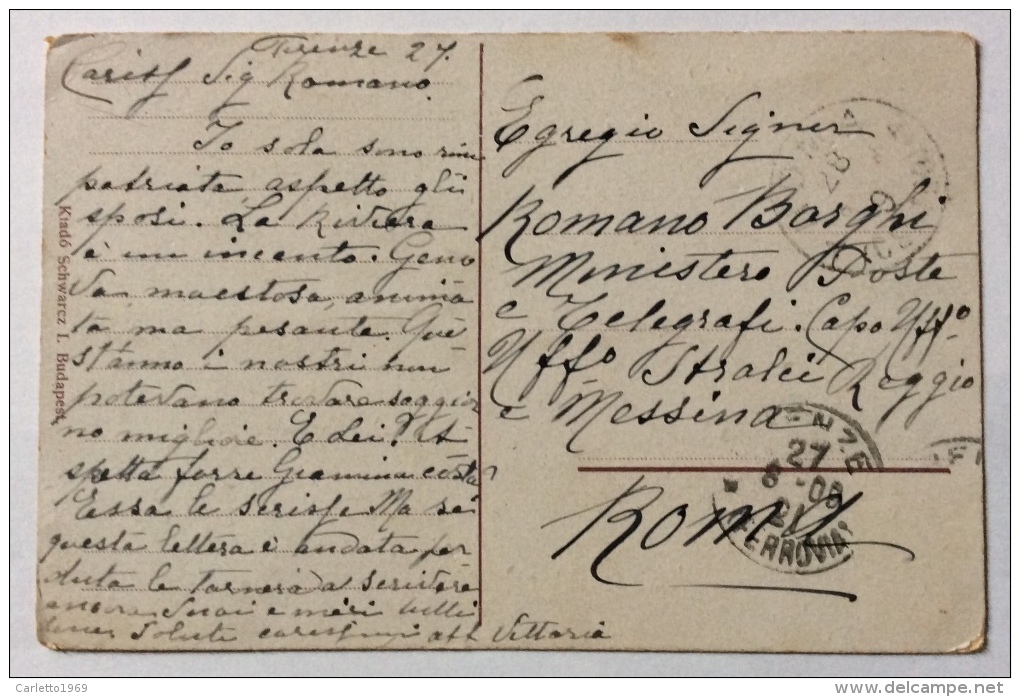 Firenze 27.
Sig Romano.
Io sola sono rim
patriata aspetto gli
sposi. La Riviera
è un incanto. Geno
va maestosa, anima
ta, ma pesante. Que
st'anno i nostri non
potevano trovare soggior
no migliore. E Lei? A
spetta forse Giannina costà?
Essa le scrisse. Ma se
questa lettera è andata per
duta le tornerà a scrivere
ancora. Suoi e miei tutti
bene. Saluti
aff Vittoria
Kiadó Schwarcz I. Budapest.
Egregio Signor
Romano Borghi
Ministero Poste
e Telegrafi. Capo Uffo
Uffo Stralci Reggio
e Messina
Roma
28
6
ENZE
27
6 -09
21
FERROVIA
Carletto1969
www.delcampe.net